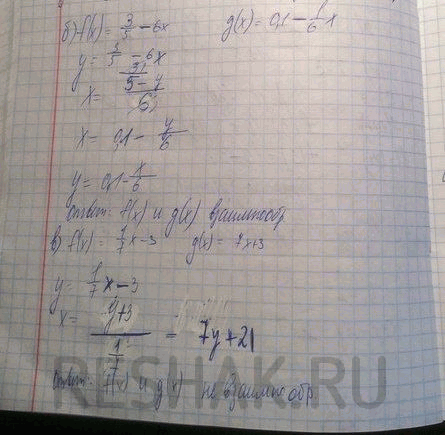 б) f(x) = 3/5 - 6x g(x) = 0,1 - 1/6 x
y = 3/5 - 6x
x = (3/5 - y)/6
x = 0,1 - y/6
y = 0,1 - x/6
ответ: f(x) и g(x) взаимнообр
в) f(x) = 1/7 x - 3 g(x) = 7x+3
y = 1/7 x - 3
x = (y+3)/(1/7) = 7y + 21
ответ: f(x) и g(x) не взаимно обр.
RESHAK.RU